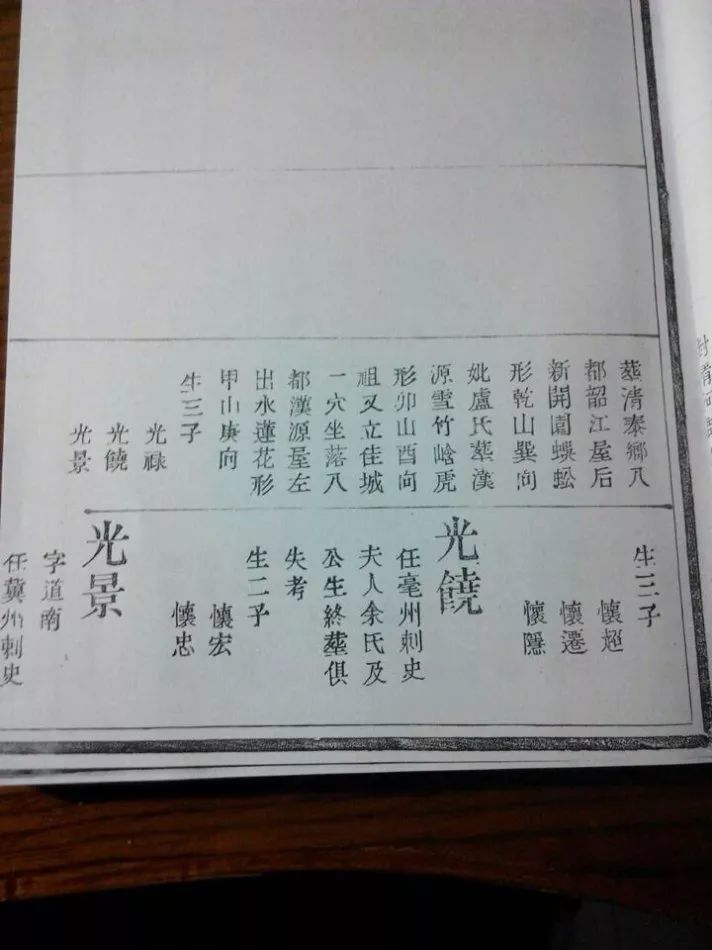 葬清泰鄉八
都韶江屋后
新開園蜈蚣
形乾山巽向
妣盧氏葬漢
源雪竹峆虎
形卯山酉向
祖又立佳城
一穴坐落八
都漢源屋左
出水蓮花形
甲山庚向
生三子
光祿
光饒
光景
生三子
懷超
懷遷
懷隱
光饒
任亳州刺史
夫人余氏及
公生終葬俱
失考
生二子
懷宏
懷忠
光景
字道南
任冀州刺史